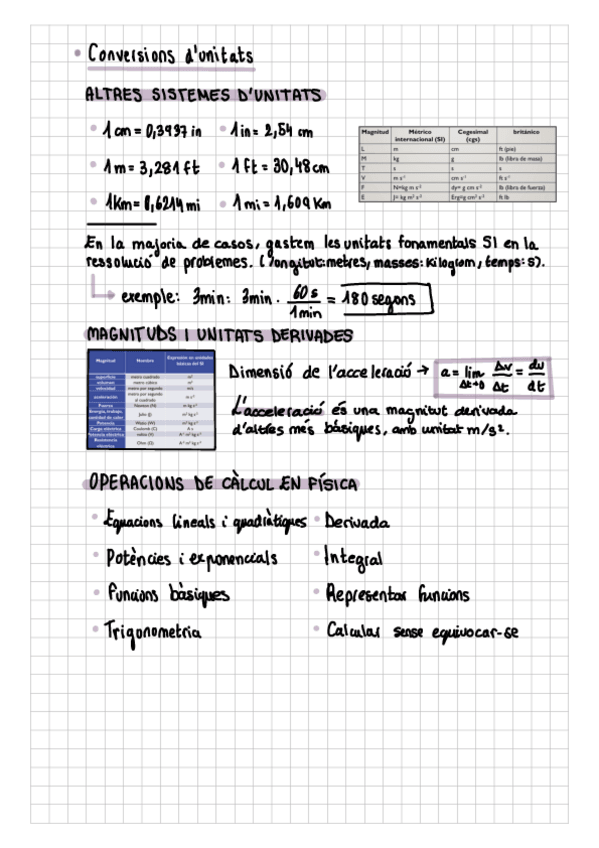 • Conversions d'unitats
ALTRES SISTEMES D'UNITATS
• 1 cm = 0,3937 in • 1 in = 2,54 cm
• 1 m = 3,281 ft • 1 ft = 30,48 cm
• 1 Km = 0,6214 mi • 1 mi = 1,609 Km
Magnitud Métrico internacional (SI) Cegesimal (cgs) británico
L m cm ft (pie)
M kg g lb (libra de masa)
T s s s
V m s⁻¹ cm s⁻¹ ft s⁻¹
F N=kg m s⁻² dy= g cm s⁻² lb (libra de fuerza)
E J= kg m² s⁻² Erg=g cm² s⁻² ft lb
En la majoria de casos, gastem les unitats fonamentals SI en la
ressolució de problemes. (longitut:metres, masses:Kilogram, temps:s).
exemple: 3min: 3min · 60 s / 1 min = 180 segons
MAGNITUDS I UNITATS DERIVADES
Magnitud Nombre Expresión en unidades básicas del SI
superficie metro cuadrado m²
volumen metro cúbico m³
velocidad metro por segundo m/s
aceleración metro por segundo al cuadrado m s⁻²
Fuerza Newton (N) m kg s⁻²
Energía, trabajo, cantidad de calor Julio (J) m² kg s⁻²
Potencia Watio (W) m² kg s⁻³
Carga eléctrica Coulomb (C) A s
Potencia eléctrica voltio (V)
Resistencia eléctrica Ohm (Ω)
Dimensió de l'acceleració → a = lim Δt→0 Δv/Δt = dv/dt
L'acceleració és una magnitut derivada
d'altres més bàsiques, amb unitat m/s².
OPERACIONS DE CÀLCUL EN FÍSICA
• Equacions lineals i quadràtiques • Derivada
• Potències i exponencials • Integral
• Funcions bàsiques • Representar funcions
• Trigonometria • Calcular sense equivocar-se